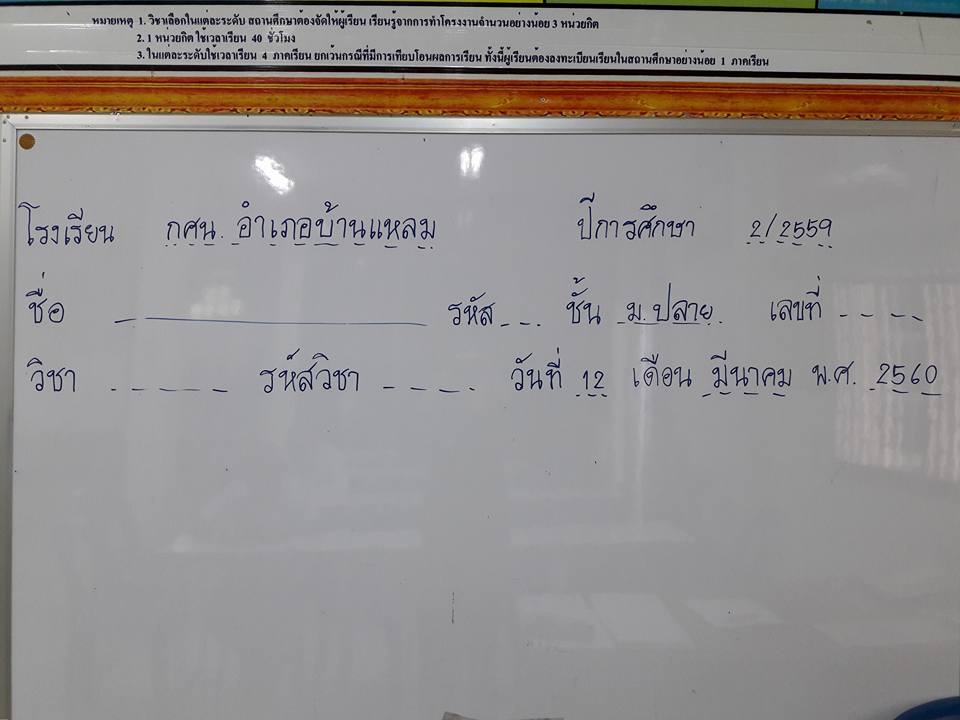 หมายเหตุ 1. วิชาเลือกในแต่ละระดับ สถานศึกษาต้องจัดให้ผู้เรียน เรียนรู้จากการทำโครงงานจำนวนอย่างน้อย 3 หน่วยกิต
2. 1 หน่วยกิต ใช้เวลาเรียน 40 ชั่วโมง
3. ในแต่ละระดับใช้เวลาเรียน 4 ภาคเรียน ยกเว้นกรณีที่มีการเทียบโอนผลการเรียน ทั้งนี้ผู้เรียนต้องลงทะเบียนเรียนในสถานศึกษาอย่างน้อย 1 ภาคเรียน
โรงเรียน กศน. อำเภอบ้านแหลม ปีการศึกษา 2/2559
ชื่อ ____________ รหัส _ _ _ ชั้น ม.ปลาย. เลขที่ _ _ _ _
วิชา _ _ _ _ _ รหัสวิชา _ _ _ _ วันที่ 12 เดือน มีนาคม พ.ศ. 2560